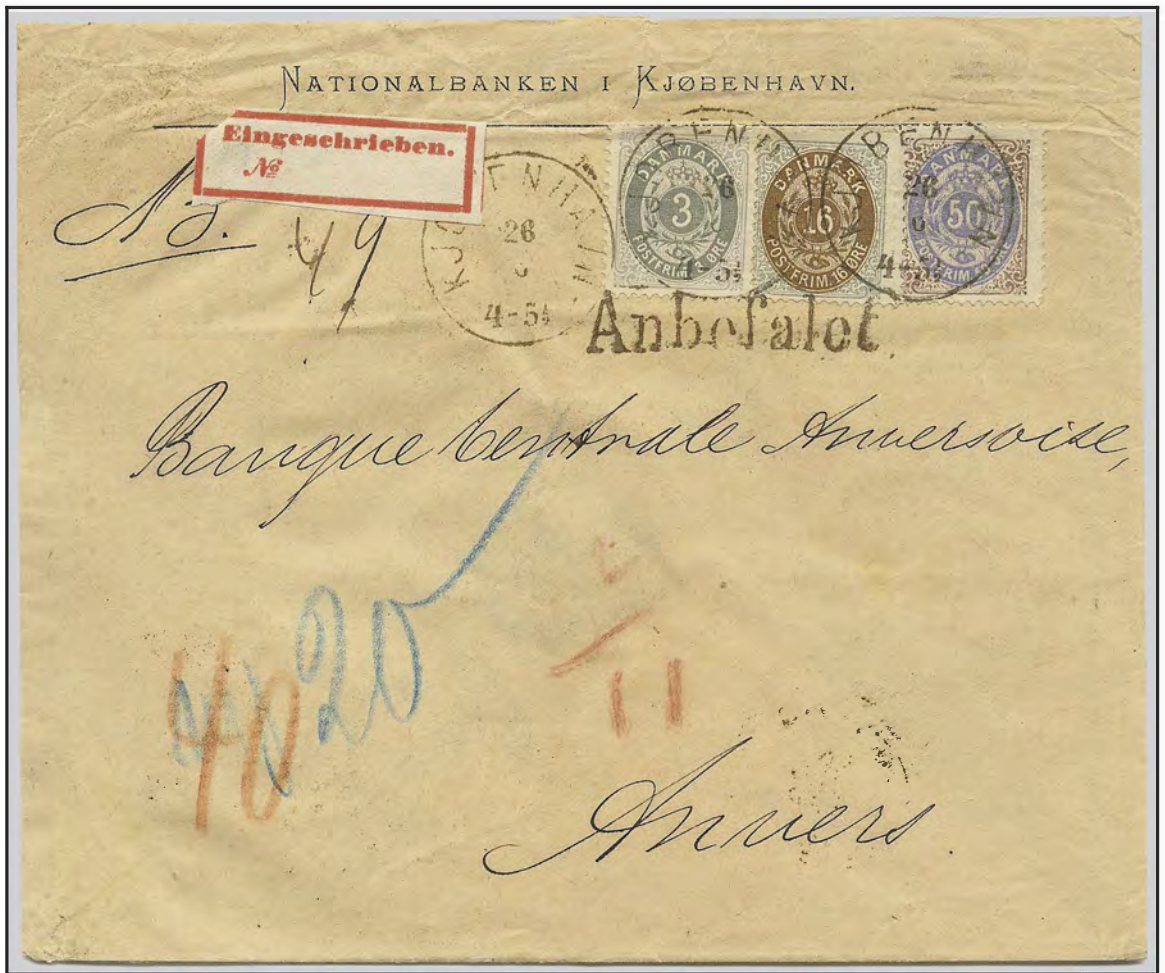 NATIONALBANKEN I KJØBENHAVN.
Eingeschrieben.
№
No. 49
KJØBENHAVN
26
6
4-5½
DANMARK
3
POSTFRIM. 3 ØRE
DANMARK
16
POSTFRIM. 16 ØRE
DANMARK
50
POSTFRIM.
26
4-5½
26
6
4-5½
Anbefalet.
Banque Centrale Anversoise,
20
40
11
Anvers